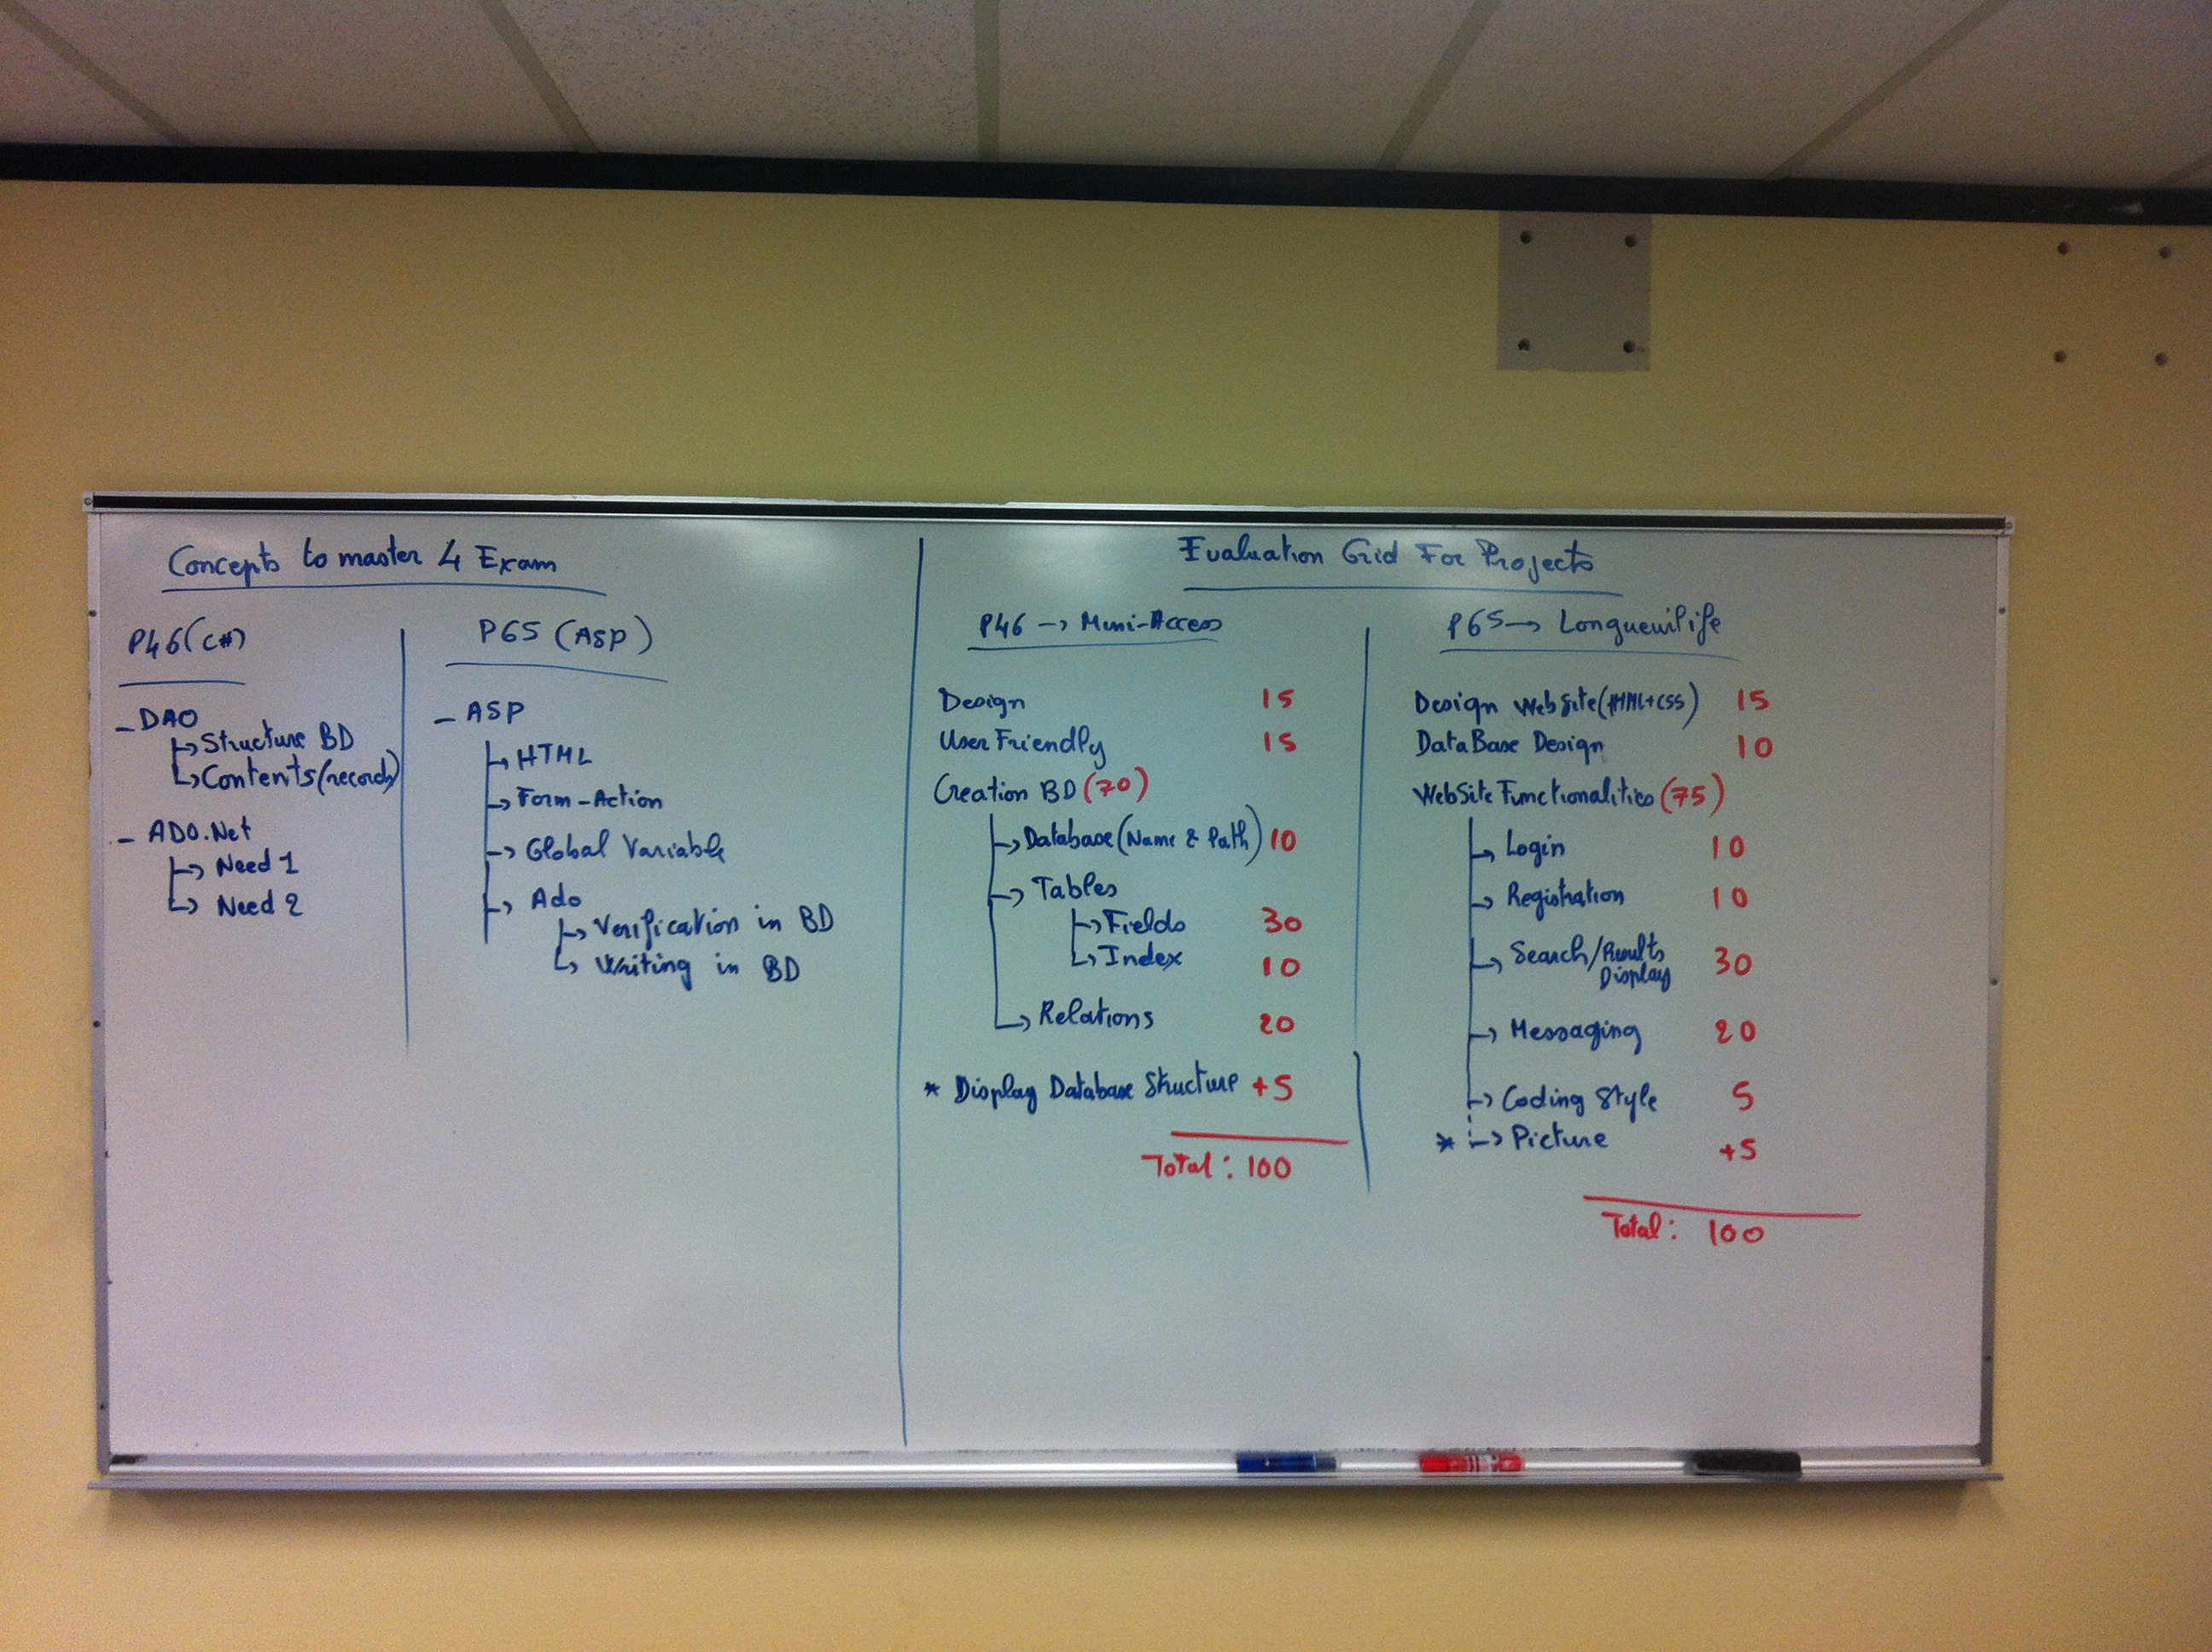 Concepts to master 4 Exam
P46 (C#)
- DAO
Structure BD
Contents (records)
- ADO.Net
Need 1
Need 2
P65 (ASP)
- ASP
HTML
Form-Action
Global Variable
Ado
Verification in BD
Writing in BD
Evaluation Grid For Projects
P46 → Mini-Access
Design 15
User Friendly 15
Creation BD (70)
Database (Name & Path) 10
Tables
Fields 30
Index 10
Relations 20
* Display Database Structure +5
Total: 100
P65 → Longueuilife
Design WebSite (HTML+CSS) 15
DataBase Design 10
WebSite Functionalities (75)
Login 10
Registration 10
Search/Results
Display 30
Messaging 20
Coding Style 5
* Picture +5
Total: 100